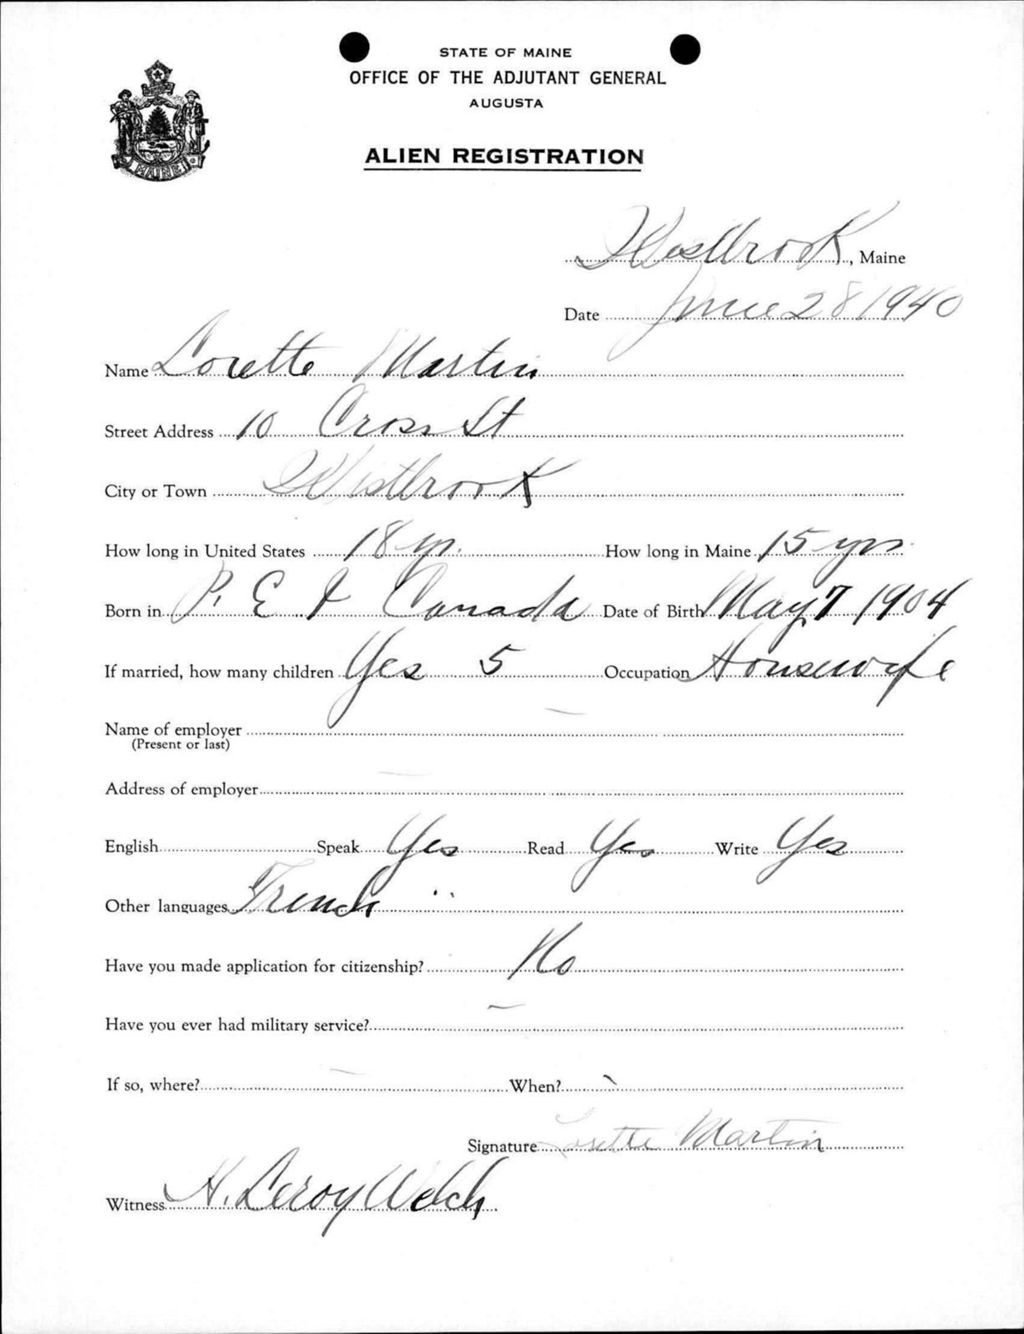 STATE OF MAINE
OFFICE OF THE ADJUTANT GENERAL
AUGUSTA
ALIEN REGISTRATION
MAINE
Westbrook, Maine
Date June 28 1940
Name Lorette Martin
Street Address 10 Cross St
City or Town Westbrook
How long in United States 18 yr. How long in Maine 15 yrs
Born in P. E I Canada Date of Birth May 7 1904
If married, how many children Yes 5 Occupation Housewife
Name of employer —
(Present or last)
Address of employer —
English Speak Yes Read Yes Write Yes
Other languages French "
Have you made application for citizenship? No
Have you ever had military service? —
If so, where? — When? -
Signature Lorette Martin
Witness H. Leroy Welch